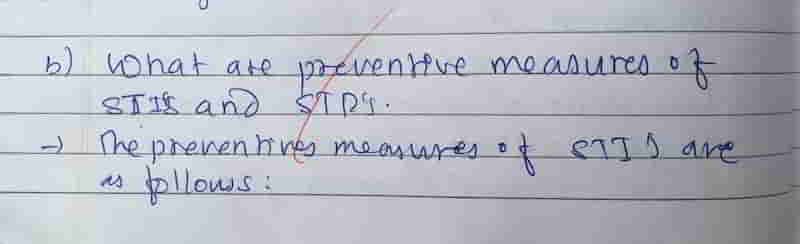 b) What are preventive measures of
STI's and STD's.
→ The preventives measures of STI's are
as follows: